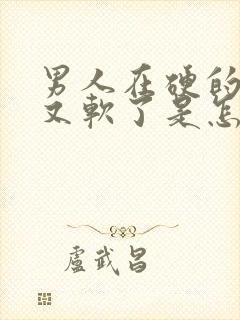 男人在硬的
又软了是怎
盧武昌